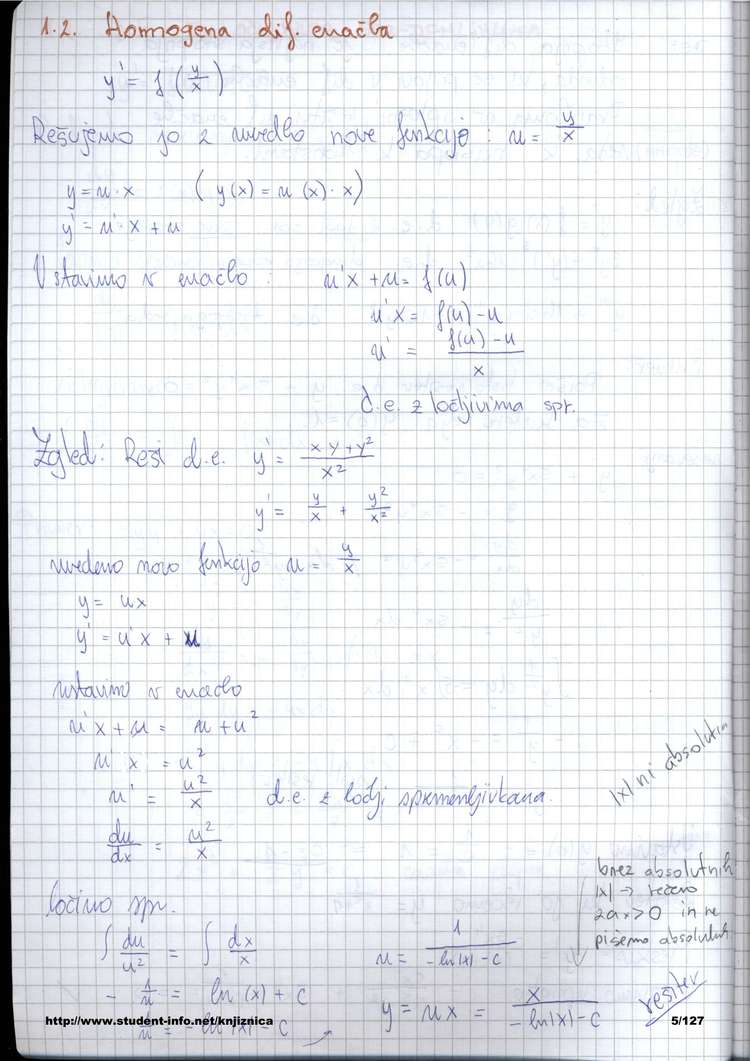 1.2. Homogena dif. enačba
y' = f (y/x)
Rešujemo jo z uvedbo nove funkcijo : u = y/x
y = u · x ( y(x) = u (x) · x)
y' = u' · x + u
Vstavimo v enačbo : u'x + u = f(u)
u'x = f(u) - u
u' = (f(u) - u)/x
d.e. z ločljivima spr.
Zgled: Reši d.e. y' = (xy + y²)/x²
y' = y/x + y²/x²
uvedemo novo funkcijo u = y/x
y = ux
y' = u'x + u
ustavimo v enačbo
u'x + u = u + u²
u'x = u²
u' = u²/x d.e. z ločj. spremenljivkama.
|x| ni absolutn
du/dx = u²/x
brez absolutnih
|x| → rečemo
za x > 0 in ne
pišemo absolutnih
ločimo spr.
∫ du/u² = ∫ dx/x
u = 1/(-ln|x| - c)
- 1/u = ln (x) + c
1/u = -ln|x| - c
y = ux = x/(-ln|x| - c) rešitev
http://www.student-info.net/knjiznica 5/127